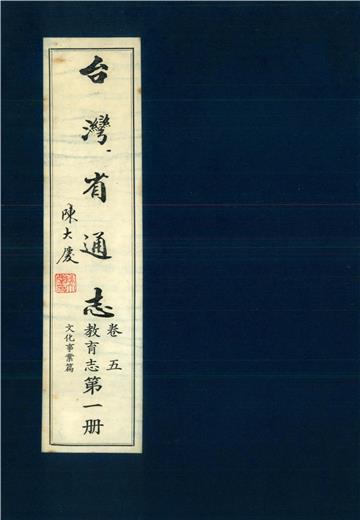 台灣省通志
陳大慶
卷五
教育志第一册
文化事業篇